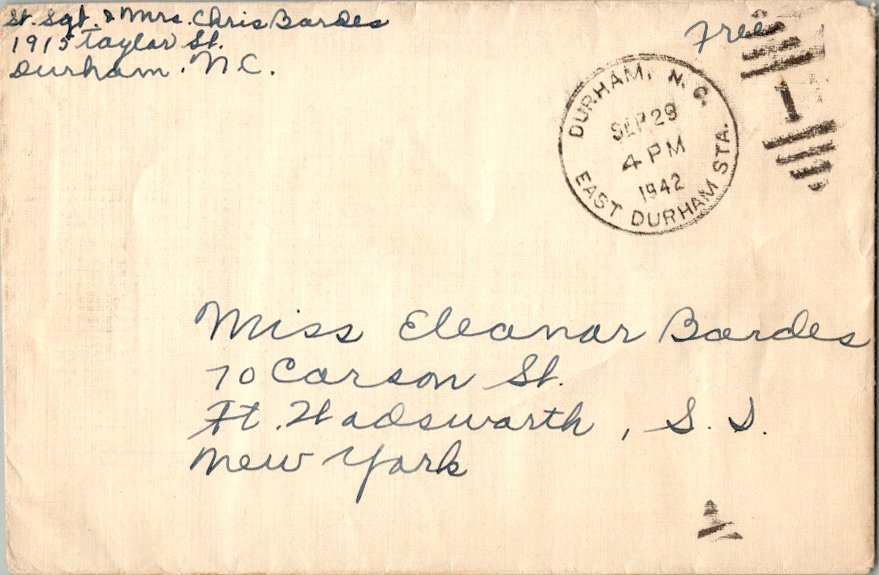 St. Sgt. & Mrs. Chris Bardes
1915 Taylor St.
Durham. N.C.
Free
DURHAM, N. C.
SEP 29
4 PM
1942
EAST DURHAM STA.
1
Miss Eleanor Bardes
70 Carson St.
Ft. Wadsworth, S. I.
New York